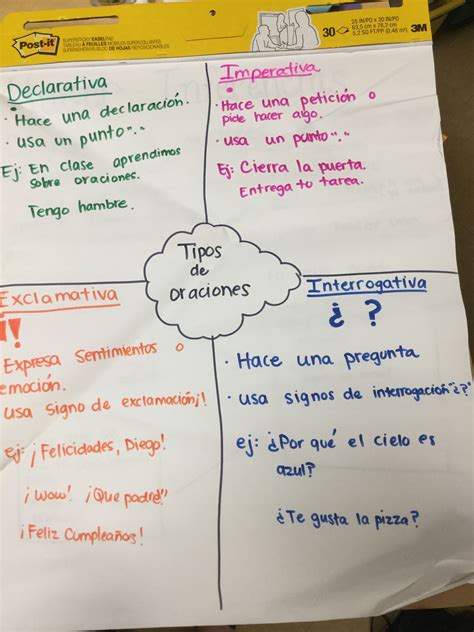 Post-it
SUPERSTICKY EASEL PAD
30
25 IN X 30 IN/PO
63,5 cm x 76,2 cm
5.2 SQ FT/PI² (0.48 m²)
3M
Declarativa
• Hace una declaración.
• usa un punto".".
Ej: En clase aprendimos
sobre oraciones.
Tengo hambre.
Imperativa
• Hace una petición o
pide hacer algo.
• usa un punto".".
Ej: Cierra la puerta.
Entrega tu tarea.
Tipos
de
oraciones
Exclamativa
¡!
Expresa sentimientos o
emoción.
usa signo de exclamación¡!
ej: ¡Felicidades, Diego!
¡Wow! ¡Que padre!
¡Feliz Cumpleaños!
Interrogativa
¿ ?
• Hace una pregunta
• usa signos de interrogación"¿?"
ej: ¿Por qué el cielo es
azul?
¿Te gusta la pizza?